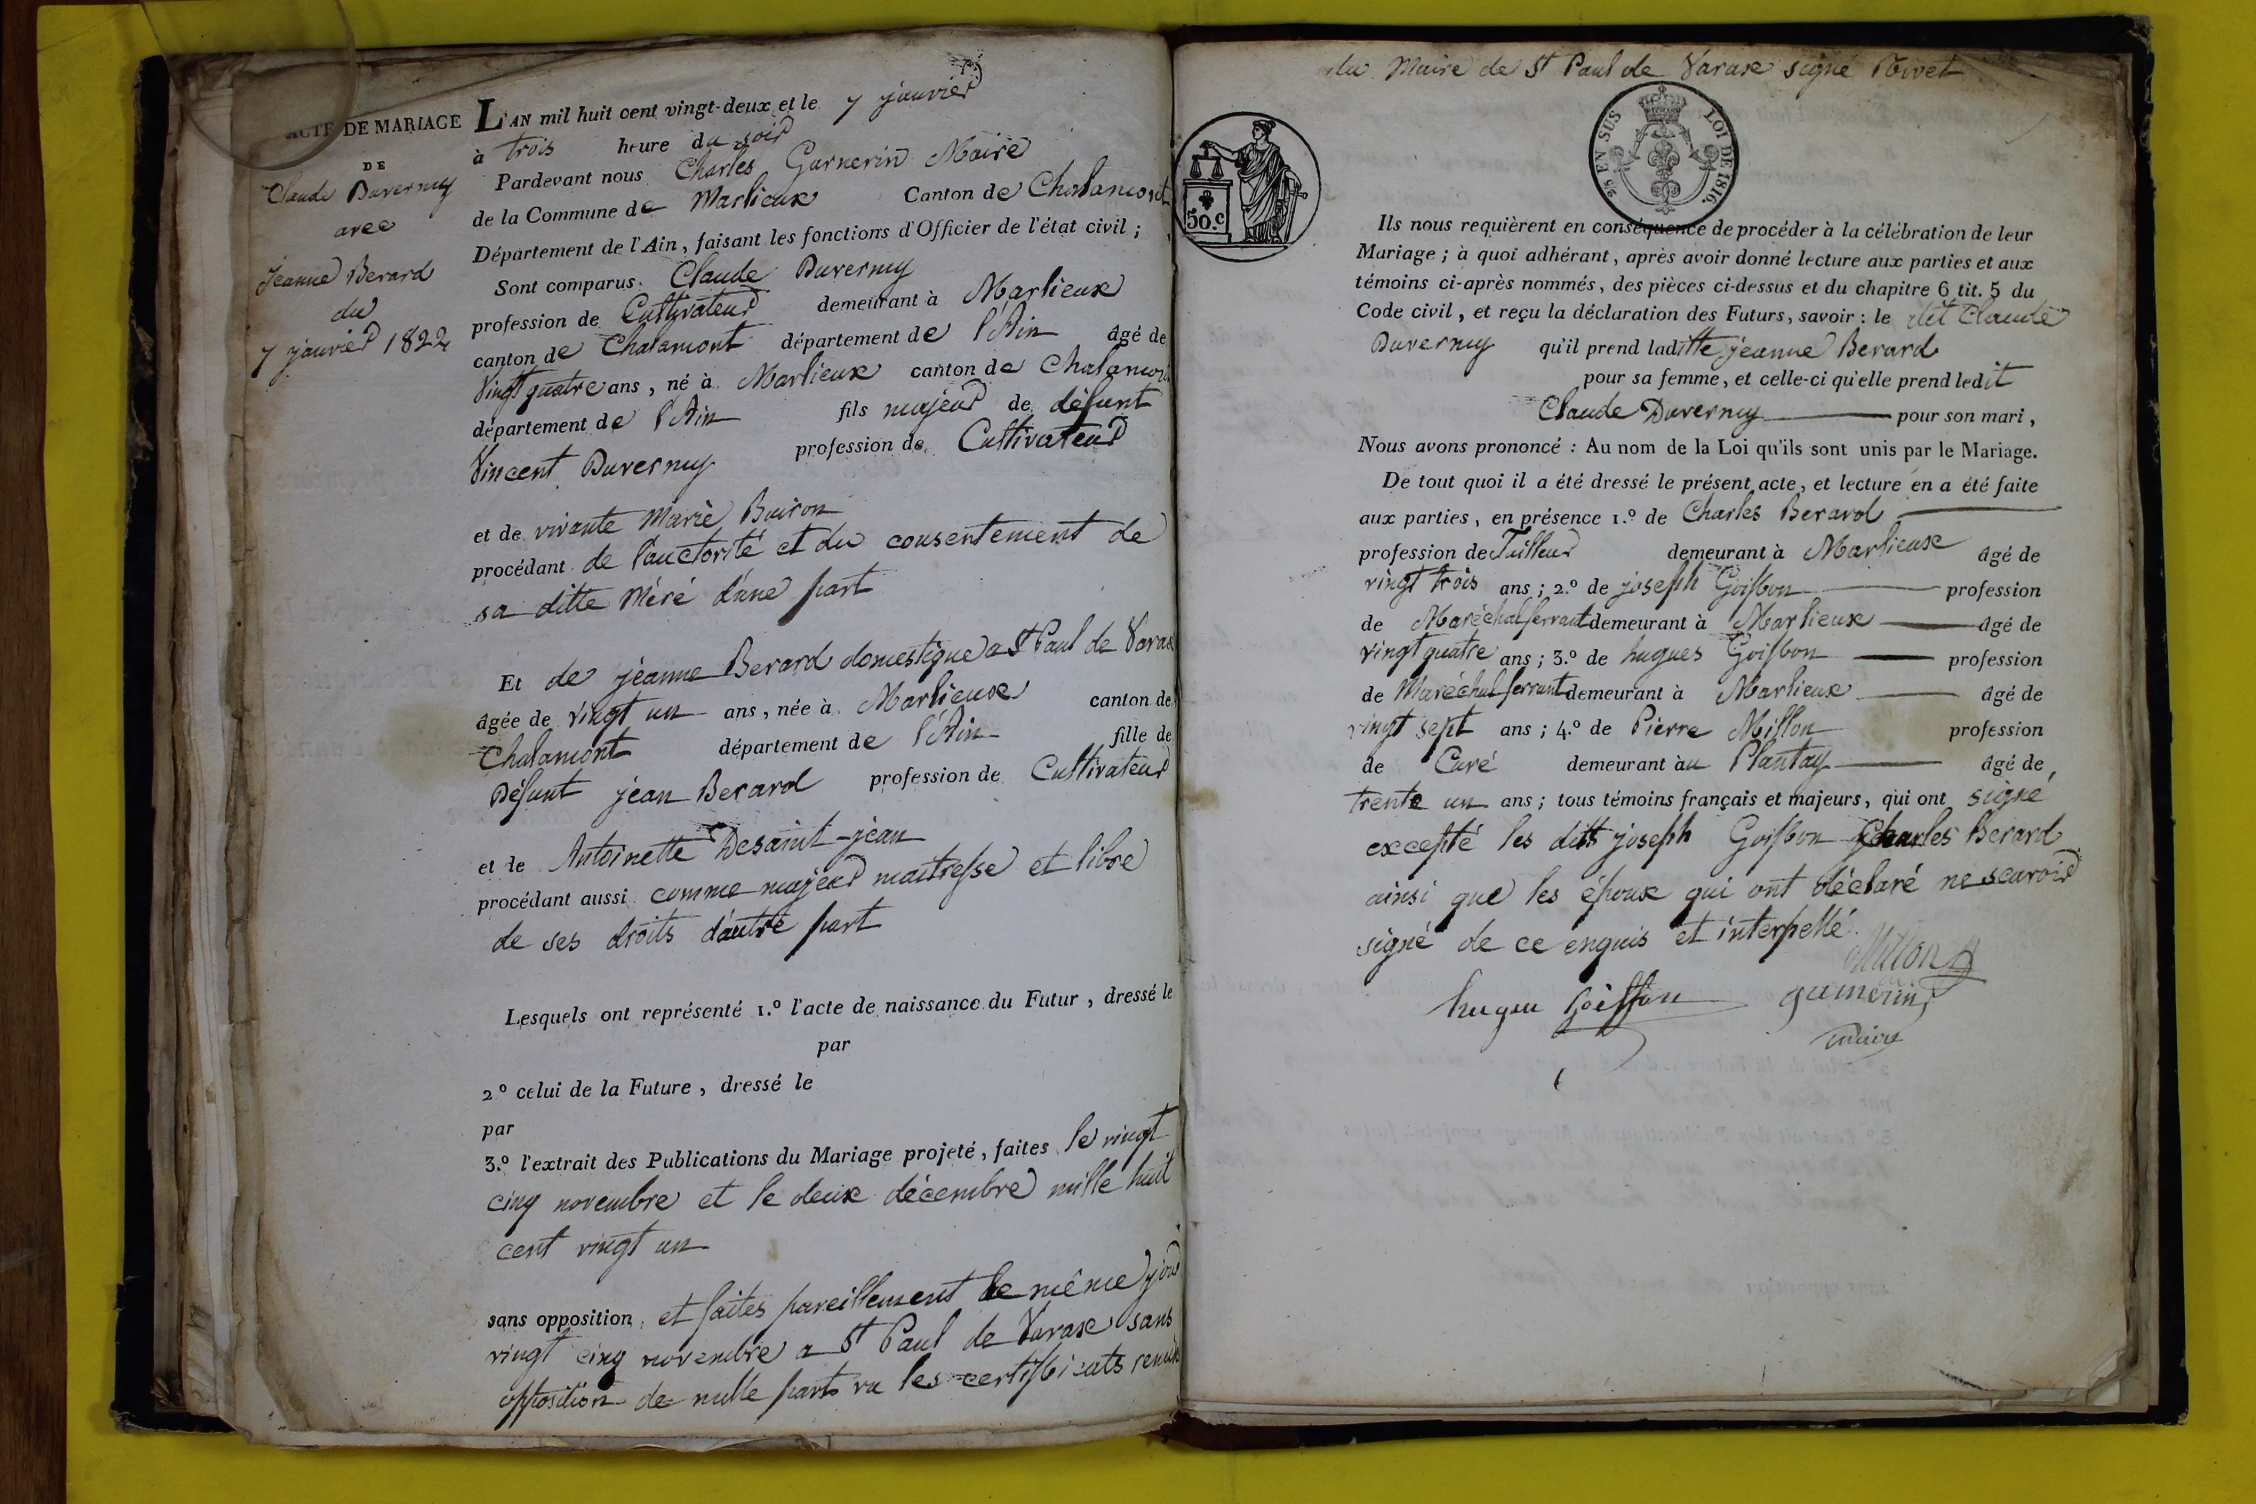 ACTE DE MARIAGE
DE
Claude Duvernay
avec
jeanne Berard
du
7 janvier 1822
L'AN mil huit cent vingt-deux et le 7 janvier
à trois heure du soir
Pardevant nous Charles Garnerin Maire
de la Commune de Marlieux Canton de Chalamont
Département de l'Ain, faisant les fonctions d'Officier de l'état civil ;
Sont comparus Claude Duvernay
profession de Cultivateur demeurant à Marlieux
canton de Chalamont département de l'Ain âgé de
vingt quatre ans, né à Marlieux canton de Chalamont
département de l'Ain fils majeur de défunt
Vincent Duvernay profession de Cultivateur
et de vivante Marie Buiron
procédant de l'auctorité et du consentement de
sa ditte Méré d'une part
Et de jeanne Berard domestique a St Paul de Varax
âgée de vingt un ans, née à Marlieux canton de
Chalamont département de l'Ain fille de
Défunt jéan Berard profession de Cultivateur
et de Antoinette Desaint-jéan
procédant aussi comme majeur maitresse et libre
de ses droits d'autre part
Lesquels ont représenté 1.º l'acte de naissance du Futur, dressé le
par
2º celui de la Future, dressé le
par
3.º l'extrait des Publications du Mariage projeté, faites le vingt
cinq novembre et le deux décembre mille huit
cent vingt un
sans opposition, et faites pareillement le même jour
vingt cinq novembre a St Paul de Varax sans
opposition de nulle parts vu les certificats remis
du Maire de St Paul de Varax signé Rivet
50 c
25 EN SUS LOI DE 1816.
Ils nous requièrent en conséquence de procéder à la célébration de leur
Mariage ; à quoi adhérant, après avoir donné lecture aux parties et aux
témoins ci-après nommés, des pièces ci-dessus et du chapitre 6 tit. 5 du
Code civil, et reçu la déclaration des Futurs, savoir : le dit Claude
Duvernay qu'il prend laditte jeanne Berard
pour sa femme, et celle-ci qu'elle prend ledit
Claude Duvernay pour son mari,
Nous avons prononcé : Au nom de la Loi qu'ils sont unis par le Mariage.
De tout quoi il a été dressé le présent acte, et lecture en a été faite
aux parties, en présence 1.º de Charles Berard
profession de Tailleur demeurant à Marlieux âgé de
vingt trois ans ; 2.º de joseph Goisson profession
de Maréchal ferrant demeurant à Marlieux âgé de
vingt quatre ans ; 3.º de hugues Goisson profession
de Maréchal ferrant demeurant à Marlieux âgé de
vingt sept ans ; 4.º de Pierre Millon profession
de Curé demeurant au Plantay âgé de
trente un ans ; tous témoins français et majeurs, qui ont signé
excepté les dits joseph Goisson Charles Berard
ainsi que les époux qui ont déclaré ne scavoir
signé de ce enquis et interpellé
Millon
hugue Goisson garnerin
maire